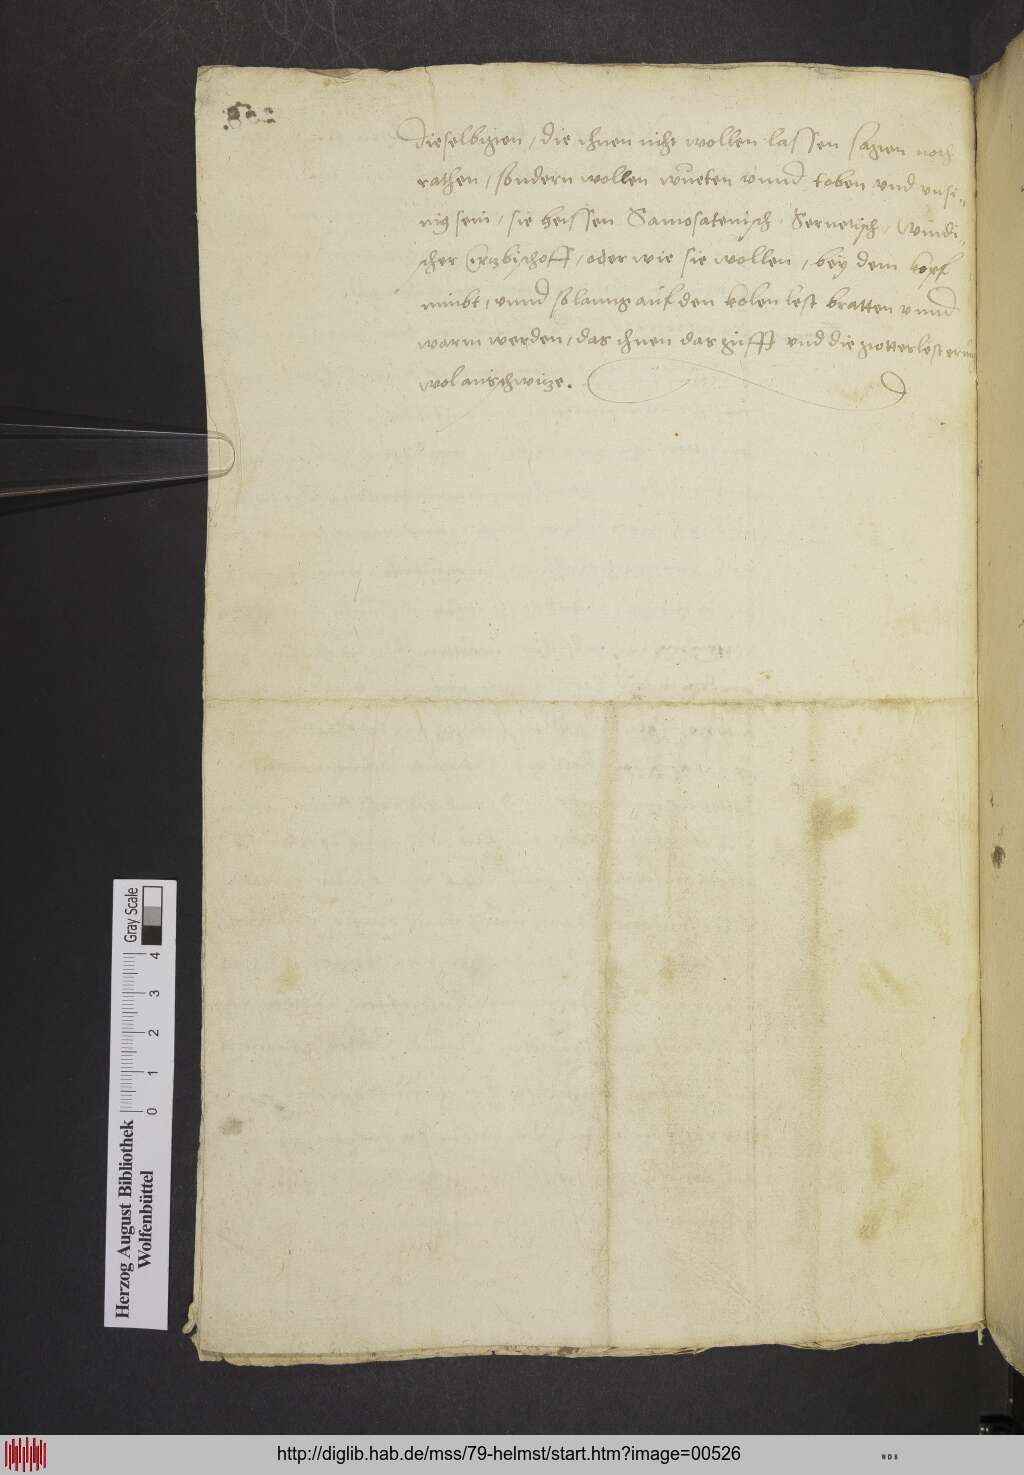 dieselbigen / die ihnen nicht wollen lassen sagen noch
rathen / sondern wollen wueten vnnd toben vnd vnsi=
nig sein / sie heissen Samosatenisch / Servetisch / Windi=
scher Ertzbischoff / oder wie sie wollen / bey dem kopf
nimbt / vnnd so lanng auf den kolen lest bratten vnnd
warm werden / das ihnen das gifft vnd die gotteslesterung
wol ausschwitze.
Herzog August Bibliothek
Wolfenbüttel
0 1 2 3 4
Gray Scale
http://diglib.hab.de/mss/79-helmst/start.htm?image=00526